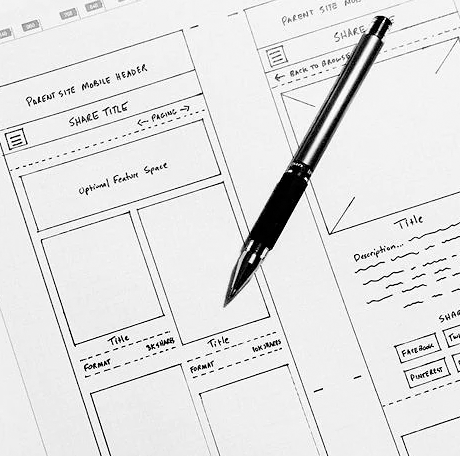 PARENT SITE MOBILE HEADER
SHARE TITLE
← PAGING →
Optional Feature Space
Title
FORMAT 3K SHARES
Title
FORMAT 10K SHARES
PARENT SITE
SHARE
← BACK TO BROWSE
Title
Description...
SHAR
FACEBOOK
PINTEREST